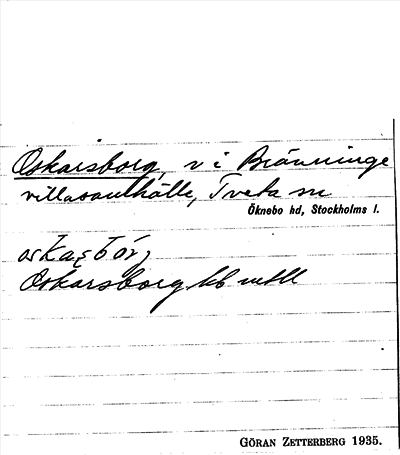 Oskarsborg, v i Bränninge
villasamhälle, Tveta sn
Öknebo hd, Stockholms l.
Oskarsborg kb mtll
GÖRAN ZETTERBERG 1935.